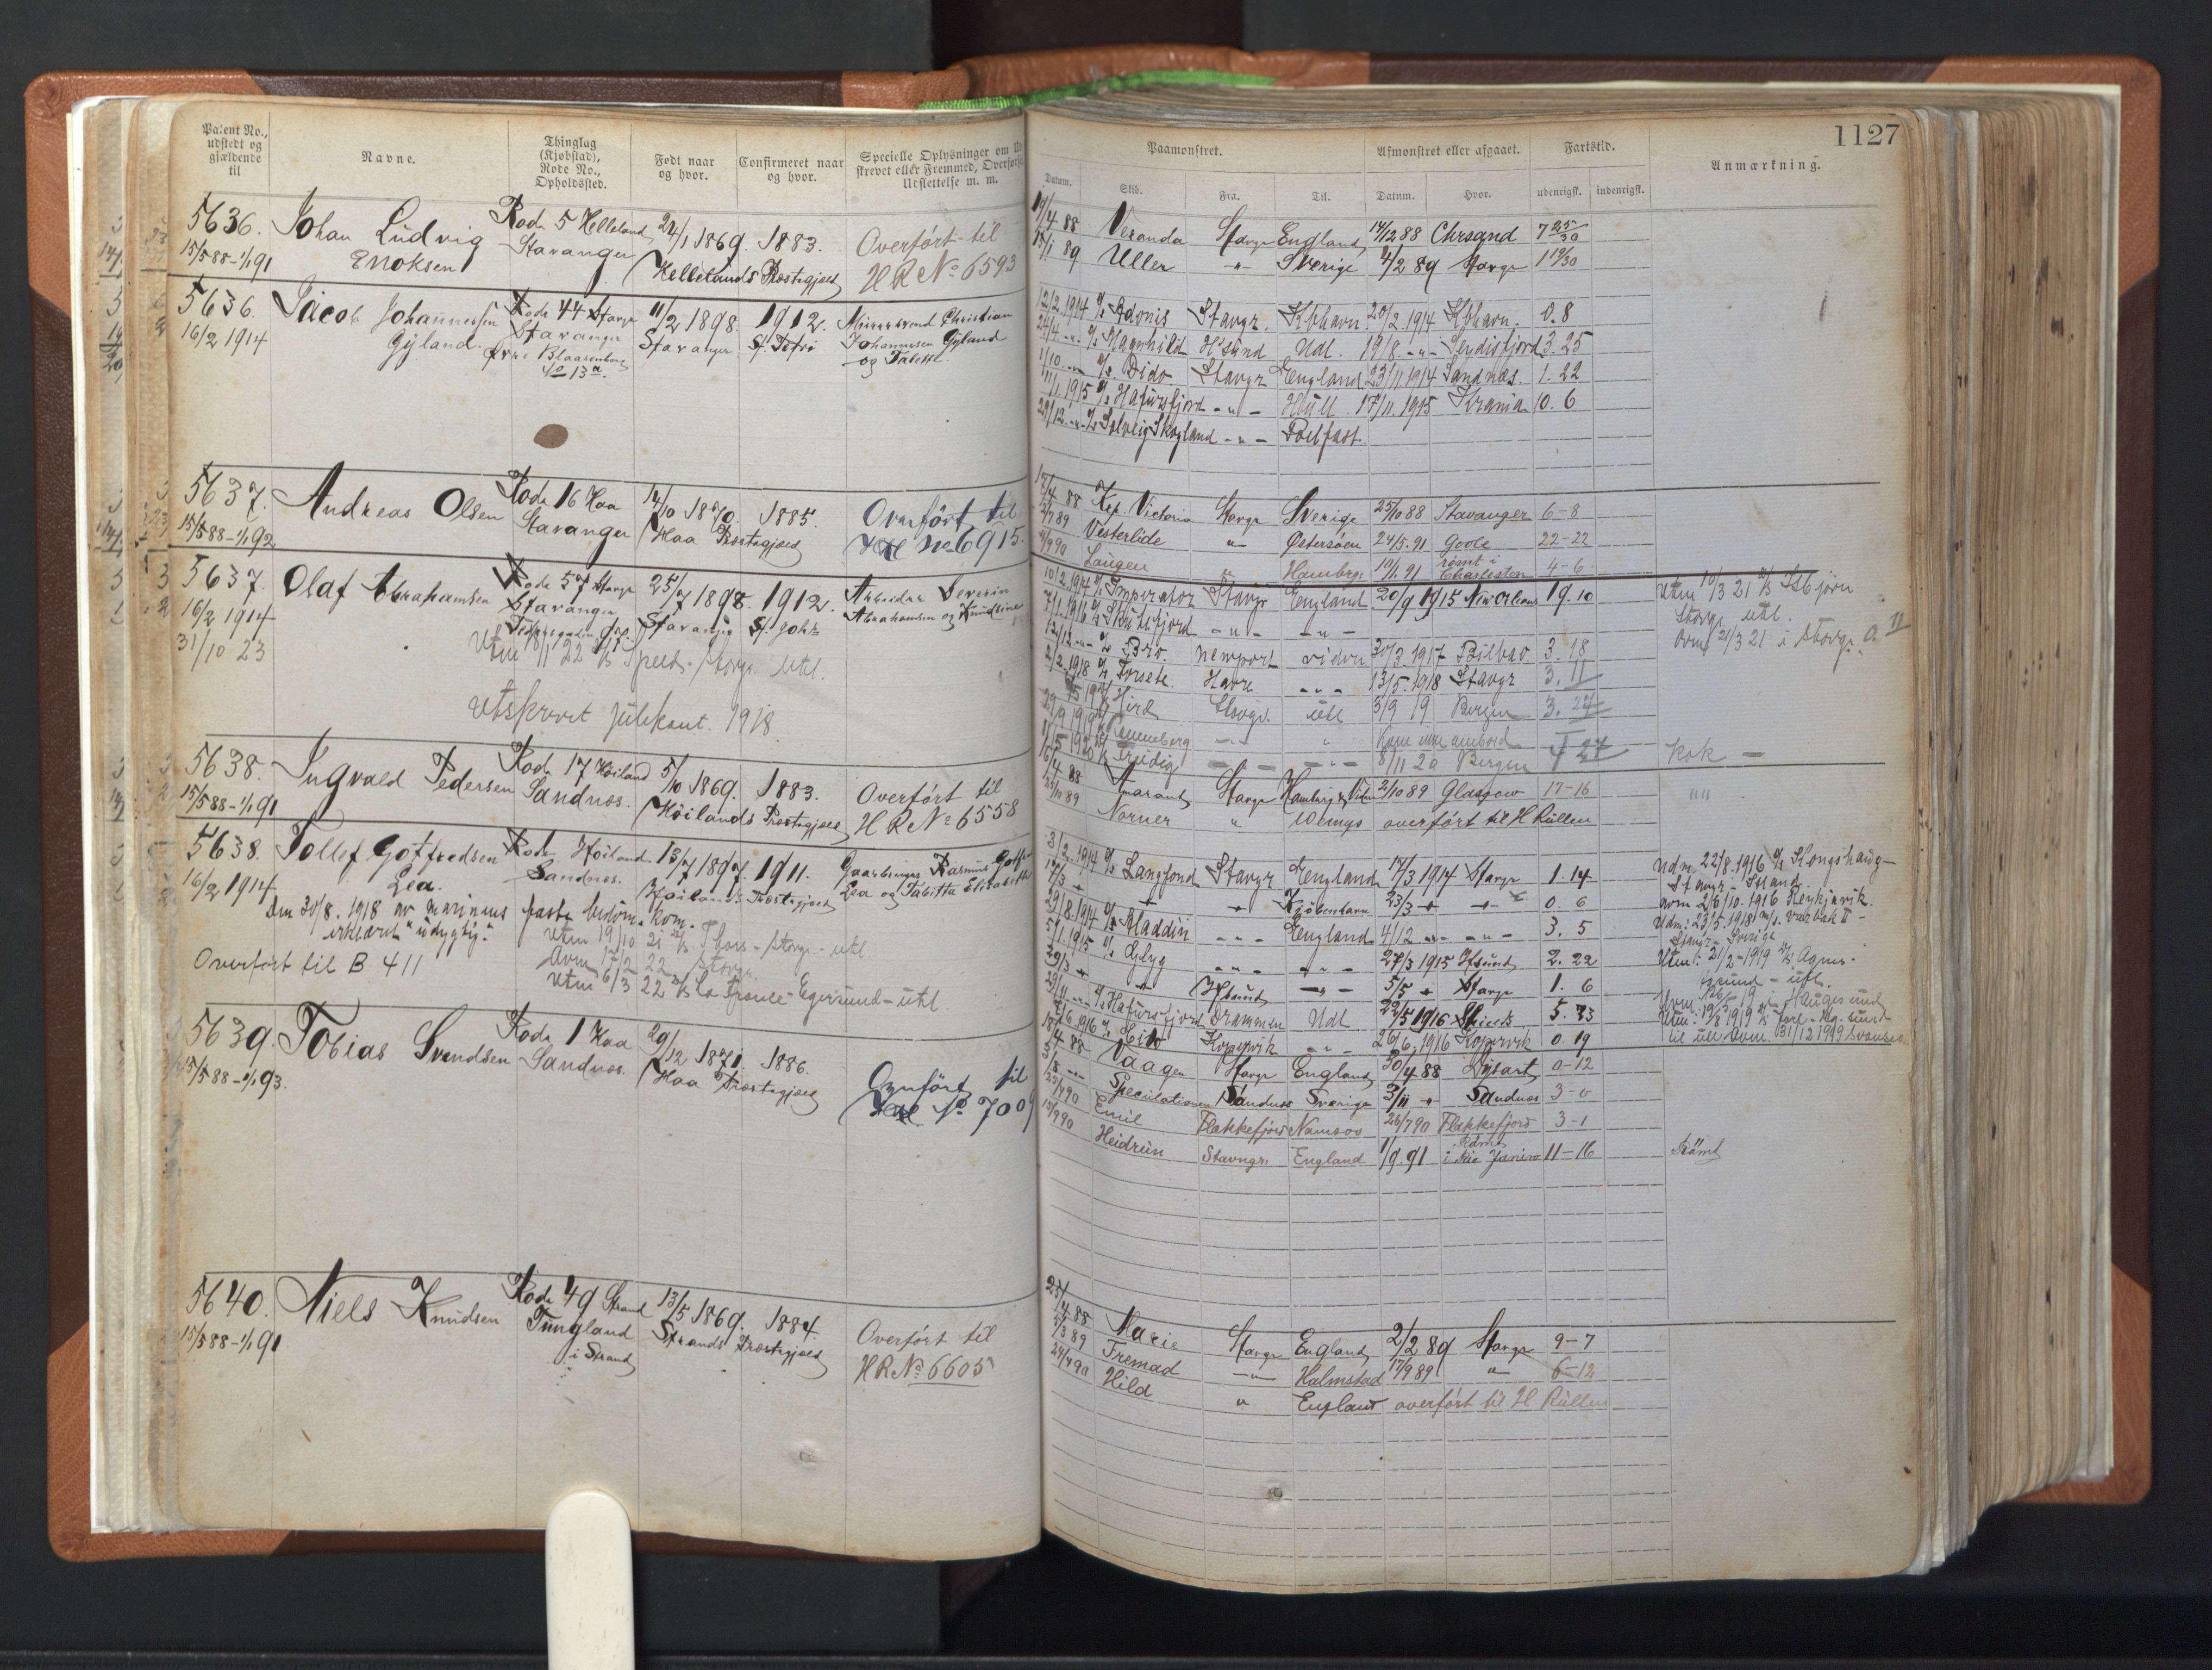 1127
Patent No., udstedt og gjældende til
Navne.
Thinglag (Kjøbstad), Rode No., Opholdssted.
Født naar og hvor.
Confirmeret naar og hvor.
Specielle Oplysninger om
Paamønstret.
Afmønstret eller afgaaet.
Fartstid.
Anmærkning.
Datum. Skib. Fra. Til. Datum. Hvor. udenrigsk. indenrigsk.
5636. Johan Ludvig Enoksen
15/5 88-1/1 91
Rode 5 Helleland
Stavanger
24/1 1869. 1883.
Hellelands Præstegjæld
Overført til
HR No 6593
14/4 88 Veranda Stavgr England 14/12 88 Chrsand 7 25/30
15/1 89 Uller -"- Sverige 4/2 89 Stavgr 1 19/30
5636. Jacob Johannessen Gyland.
16/2 1914
Rode 44 Stavgr
Stavanger
Øvre Blaasenborg
No 13a.
11/2 1898. 1912.
Stavanger St. Petri
Murersvend Christian
Johannesen Gyland
og Tabitte.
12/2.1914 Adonis Stavgr. Kbhavn 20/2.1914 Kbhavn. 0.8
24/4 -"- Ragnhild H'sund Udl. 19/8 -"- Seydisfjord 3.25
1/10 -"- Dido Stavgr England 23/11 1914 Sandnæs. 1.22
11/1.1915 Hafursfjord -"- Hull 17/11.1915 Krania 10.6
29/12 -"- Solveig Skogland -"- Belfast.
5637. Andreas Olsen
15/5 88-1/1 92
Rode 16 Haa
Stavanger
14/10 1870. 1885.
Haa Præstegjæld
Overført til
No 6915.
17/4 88 Kp. Victoria Stavgr Sverige 25/10 88 Stavanger 6-8
Vesterlide " Østersøen 24/5.91 Goole 22-22
Laugen " Hambrg. 10/1.91 rømt i Charleston 4-6
5637. Olaf Abrahamsen
16/2 1914
31/10 23
Rode 57 Stavgr
Stavanger
25/7 1898. 1912.
Stavanger St. Joh
Arbeider Severin
Abrahamsen og Gundine
Utm 18/11 22 Speed - Stavgr. Utl.
Utskrevet Julekont. 1918.
10/2.1914 Imperator Stavgr England 20/9 1915 New Orleans 19.10
7/1.1916 Skutefjord -"- -"-
12/12 -"- Bro. Newport vidre 30/3.1917 Bilbao 3.18
2/2.1918 Forsete. Havre -"- 13/5.1918 Stavgr 3.11
Hird Stavgr. utl 3/9 19 Bergen 3.24
29/9 1919 Kom ikke ombord
11/5 1920 Fredig -"- 8/11 20 Bergen 27 Kok -
Utm 10/3 21 Isbjørn
Stavgr utl.
avm 21/3 21 i Stavgr. 0. 11
5638. Ingvald Pedersen
15/5 88-1/1 91
Rode 17 Høiland
Sandnæs.
5/10 1869. 1883.
Høilands Præstegjæld
Overført til
HR No 6558
16/4 88 Amaranth Stavgr Hamburg & Vidre 2/10 89 Glasgow 17-16
25/11 89 Norner " Wemys overført til H Rullen
5638. Tollef Gotfredsen Lea.
16/2 1914.
Rode Høiland
Sandnæs.
13/7 1897. 1911.
Høilands Præstegjæld
Gaardbruger Rasmus
Lea og Tabitta Elisabeth
Den 30/8.1918 av marinens faste bedøm.kom.
erklæret "udygtig."
Overført til B 411
Utm 19/10 21 Thors - Stavgr - utl
Avm 17/2 22 Stavgr.
Utm 6/3 22 La France - Egersund - utl
3/2.1914 Langfond Stavgr England 17/3 1914 Stavgr 1.14
17/3 " " Kjøbenhavn 23/3 " " 0.6
29/8.1914 Aladdin -"- England 4/12 -"- -"- 3.5
5/1.1915 Glyg -"- -"- 27/3 1915 H'sund 2.22
29/3 " H'sund -"- 5/5 " Stavgr 1.6
29/11 -"- Hafursfjord Drammen Udl 22/5 1916 Shields 5.23
7/6 1916 Kopervik -"- 26/6.1916 Kopervik 0.19
Udm. 22/8.1916 Kongshaug -
Stavgr - Island
avm 2/6/10.1916 Reykjavik.
Udm: 23/5.1918 Varbak II -
Stavgr - Sverige
Utm: 21/2-1919 Agnes -
H'sund - utl.
5639. Tobias Svendsen
15/5 88-1/1 93.
Rode 1 Haa
Sandnæs
29/12 1871. 1886.
Haa Præstegjæld
Overført til
No 7009
18/4 88 Vaagen Stavgr England 30/4 88 Dysart 0-12
Speculationen Sandnæs Sverige 3/11 " Sandnæs 3-0
23/4 90 Emil Flekkefjord Namsos 26/7 90 Flekkefjord 3-1
10/9 90 Heidrun Stavngr. England 1/9.91 Rømt i Rio Janeiro 11-16 Rømt
5640. Niels Knudsen
15/5 88-1/1 91
Rode 49 Strand
Tungland
i Strand
13/5 1869. 1884.
Strands Præstegjæld
Overført til
HR No 6605
25/4 88 Marie Stavgr England 2/2 89 Stavgr 9-7
3/3 89 Fremad -"- Halmstad 17/9 89 " 6-12
24/4 90 Hild " England overført til H Rullen